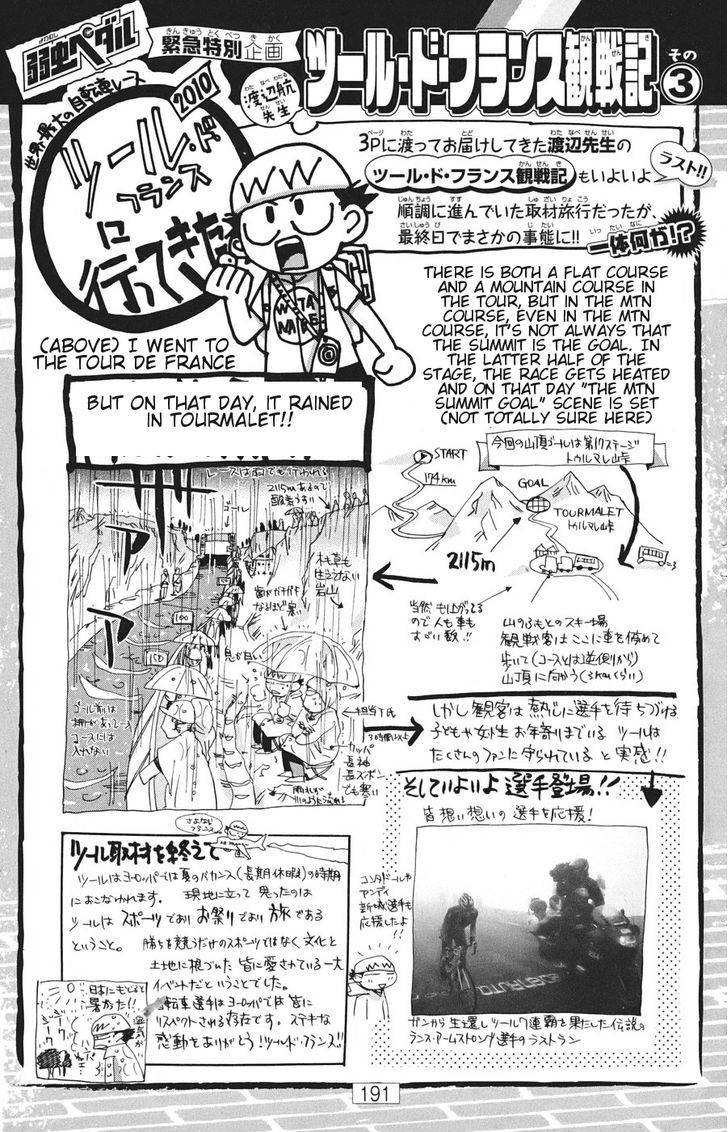 弱虫ペダル
緊急特別企画
渡辺航先生
ツール・ド・フランス観戦記
その3
世界最大の自転車レース
2010
ツール・ド
フランス
に
行ってきた
3Pに渡ってお届けしてきた渡辺先生の
ツール・ド・フランス観戦記もいよいよ
ラスト!!
順調に進んでいた取材旅行だったが、
最終日でまさかの事態に!!
一体何が!?
(ABOVE) I WENT TO
THE TOUR DE FRANCE
THERE IS BOTH A FLAT COURSE
AND A MOUNTAIN COURSE IN
THE TOUR, BUT IN THE MTN
COURSE, EVEN IN THE MTN
COURSE, IT'S NOT ALWAYS THAT
THE SUMMIT IS THE GOAL. IN
THE LATTER HALF OF THE
STAGE, THE RACE GETS HEATED
AND ON THAT DAY "THE MTN
SUMMIT GOAL" SCENE IS SET
(NOT TOTALLY SURE HERE)
BUT ON THAT DAY, IT RAINED
IN TOURMALET!!
今回の山頂ゴールは第17ステージ
トゥルマレ山峠
START
174km
GOAL
TOURMALET
トゥルマレ山峠
2115m
当然 も
ので人も車も
すごい数!!
山のふもとのスキー場
観戦客はここに車を停めて
歩いて(コースとは逆側から)
山頂に向かう(3kmくらい)
レースは雨でも行われる
2115mあるので
酸素うすい
ゴール
木も草も
生えてない
岩山
歯がガチガチ
なるほど寒い
息が白い
100
150
ゴール前は
柵があって
コースには
入れない
担当T氏
3時間以上
カッパ
長袖
長ズボン
でも寒い
しかし観客は熱心に選手を待ちつづける
子どもや女性お年寄りまでいる ツールは
たくさんのファンに守られていると実感!!
そしていよいよ選手登場!!
皆想い想いの選手を応援!
コンタドールや
アンディ
新城選手も
応援したよ
!!
ガンから生還しツール7連覇を果たした伝説の
ランス・アームストロング選手のラストラン
さよなら
フランス
ツール取材を終えて
ツールはヨーロッパでは夏のバカンス(長期休暇)の時期
におこなわれます。 現地に立って思ったのは
ツールはスポーツであり お祭りであり 旅である
ということ。 勝ちを競うだけのスポーツではなく文化と
土地に根づいた皆に愛されている一大
イベントだということでした。
自転車選手はヨーロッパでは皆に
リスペクトされる存在です。ステキな
感動をありがとう!ツールド・フランス!!
日本にもどると
暑かった!!
191